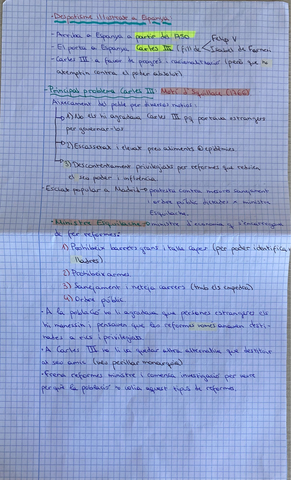 -Despotisme il·lustrat a Espanya
- Arriba a Espanya a partir del 1750 Felip V
- El porta a Espanya Carles III (fill de Isabel de Farnesi
- Carles III a favor de progrés i racionalització (però que no
atemptin contra el poder absolut)
-Principal problema Carles III Motí d'Esquilache (1766)
Alçament del poble per diversos motius:
1) No els hi agradava Carles III pq portava estrangers
per governar-los
2) Escassetat i elevat preu aliments i epidèmies
3) Descontentament privilegiats per reformes que reduïen
el seu poder i influència
-Esclat popular a Madrid → protesta contra mesures sanejament
i ordre públic dictades x ministre
Esquilache
-Ministre Esquilache → ministre d'economia y s'encarregava
de fer reformes:
1) Prohibeix barrets grans i talla capes (per poder identificar
lladres)
2) Prohibeix armes
3) Sanejament i neteja carrers (tmb els empedra)
4) Ordre públic
- A la població no li agradava que persones estrangeres els
hi manessin i pensaven que les reformes només anaven desti-
nades a rics i privilegiats
- A Carles III no li va quedar altra alternativa que destituir
al seu amic (veu perillar monarquia)
- Frena reformes ministre i comença investigació per veure
perquè la població no volia aquest tipus de reformes.